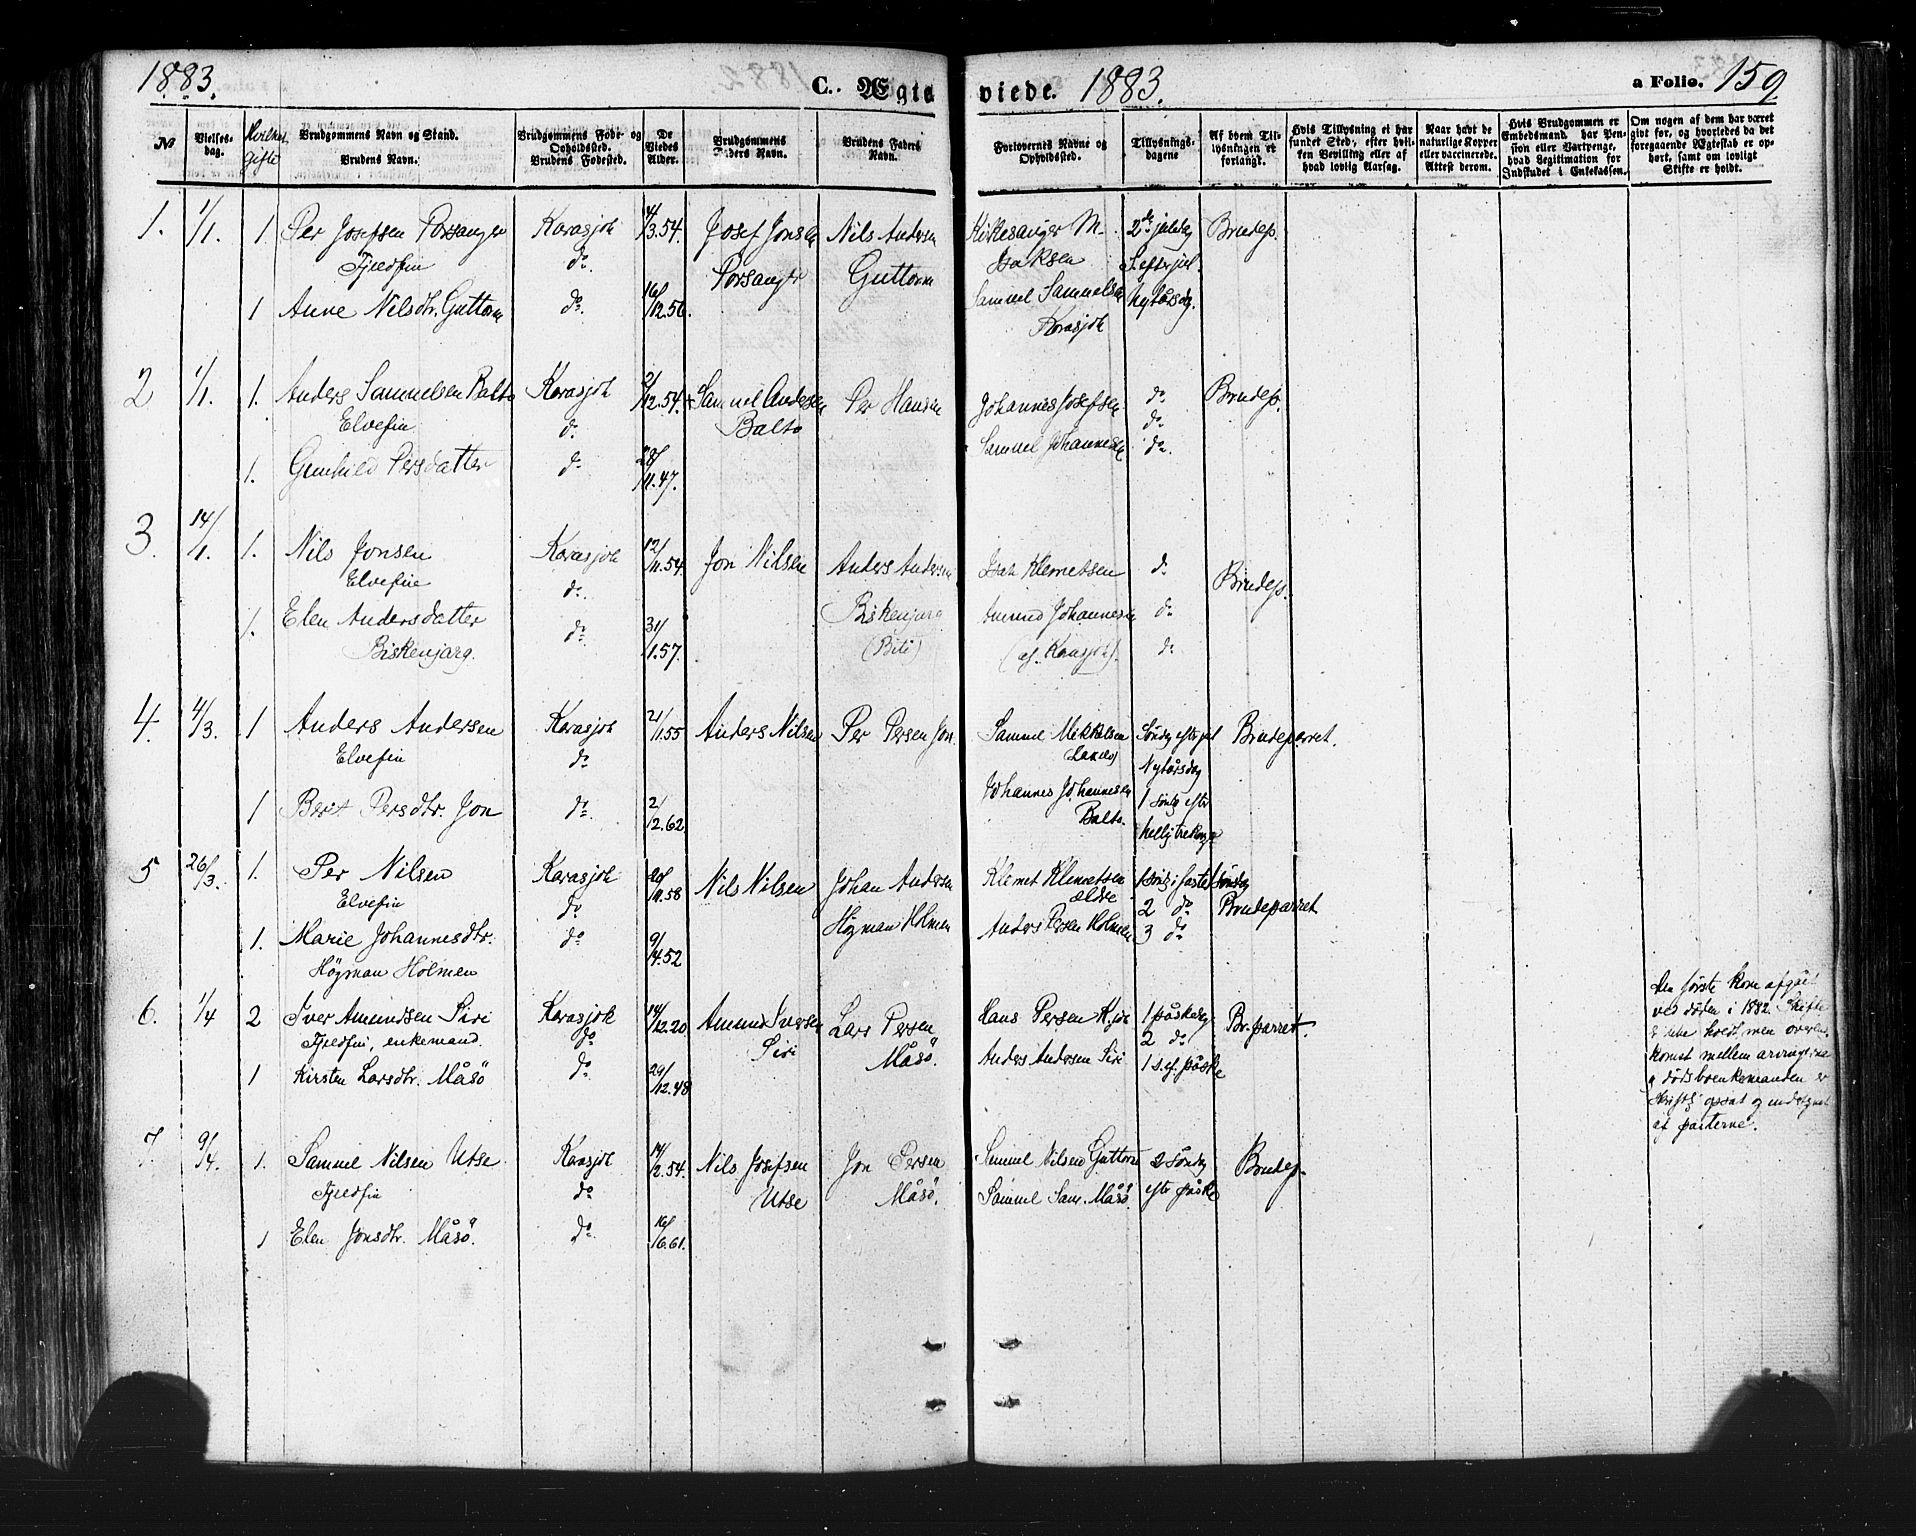 1883. C. Ægteviede. 1883. a Folio. 159
No
Vielses-dag.
Hvilket gifte
Brudgommens Navn og Stand.
Brudens Navn.
Brudgommens Føde- og Opholdssted.
Brudens Fødested.
De Viedes Alder.
Brudgommens Faders Navn.
Brudens Faders Navn.
Forlovernes Navne og Opholdssted.
Tillysnings-dagene
Af hvem Tillysningen er forlangt.
Hvis Tillysning ei har fundet Sted, efter hvilken Bevilling eller af hvad lovlig Aarsag.
Naar havt de naturlige Kopper eller vaccinerede. Attest derom.
Hvis Brudgommen er Embedsmand, har Pension eller Vartpenge, hvad Legitimation for Indskudet i Enkekassen.
Om nogen af dem har været givt før, og hvorledes da det foregaaende Ægteskab er ophørt, samt om lovligt Skifte er holdt.
1. 1/1. 1. Per Josefsen Porsanger Karasjok 4/3.54. Josef Jonsen Nils Andersen Kirkesanger M. 2de juledag Brudep.
Fjeldfin do. Porsanger Guttorm Isaksen S. efter jul.
1 Anne Nilsdtr. Guttorm do. 16/12.56. Samuel Samuelsen Nytårsdg.
Karasjok
2 1/1. 1. Anders Samuelsen Balto Karasjok 2/12.54. Samuel Andersen Per Hansen Johannes Josefsen do. Brudep.
Elvefin do. Balto do.
1. Gunhild Persdatter do. 28/11.47. Samuel Johannesen do.
3. 14/1. 1. Nils Jonsen Karasjok 12/11.54. Jon Nilsen Anders Andersen Isak Klemetsen do. Brudep.
Elvefin do.
1. Elen Andersdatter do. 31/1.57. Biskenjarg Amund Johannesen do.
Biskenjarg. (Biti) (af Karasjok). do.
4. 4/3. 1 Anders Andersen Karasjok 21/1.55 Anders Nilsen Per Persen Jon. Samuel Mikkelsen Søndg efter jul Brudeparret.
Elvefin do Nytårsdag
1 Berit Persdtr. Jon do. 2/2.62. Johannes Johannesen 1 søndg efter
Balto. helligtrekonger
5 26/3. 1. Per Nilsen Karasjok 20/11.58 Nils Nilsen Johan Andersen Klemet Klemetsen 1 søndg i fasten
Elvefin do ældre 2 do Brudeparret
1. Marie Johannesdtr. do 9/4.52 Högman Holmen Anders Persen Holmen 3 do
Högman Holmen
6. 1/4 2 Iver Amundsen Siri Karasjok 14/12.20 Amund Iversen Lars Persen Hans Persen K.jok 1 påskedg Br.parret.
Fjeldfin, enkemand. do Siri Måsö. 2 do
1 Kirsten Larsdtr. Måsö do. 29/12.48 Anders Andersen Siri 1 s. ef. påske
Den förste kone afgået
ved döden i 1882. Skifte
er ikke holdt, men overen-
komst mellem arvingerne
og dödsboenkemanden er
skriftlg opsat og undertegnet
af parterne.
7. 9/4. 1. Samuel Nilsen Utse Karasjok 14/2.54. Nils Josefsen Jon Persen Samuel Nilsen Guttorm 2 Söndag Brudep.
Fjeldfin do Utse Måsö. Samuel Sam. Måsö. efter påske
1 Elen Jonsdtr. Måsö. do 16/6.61.